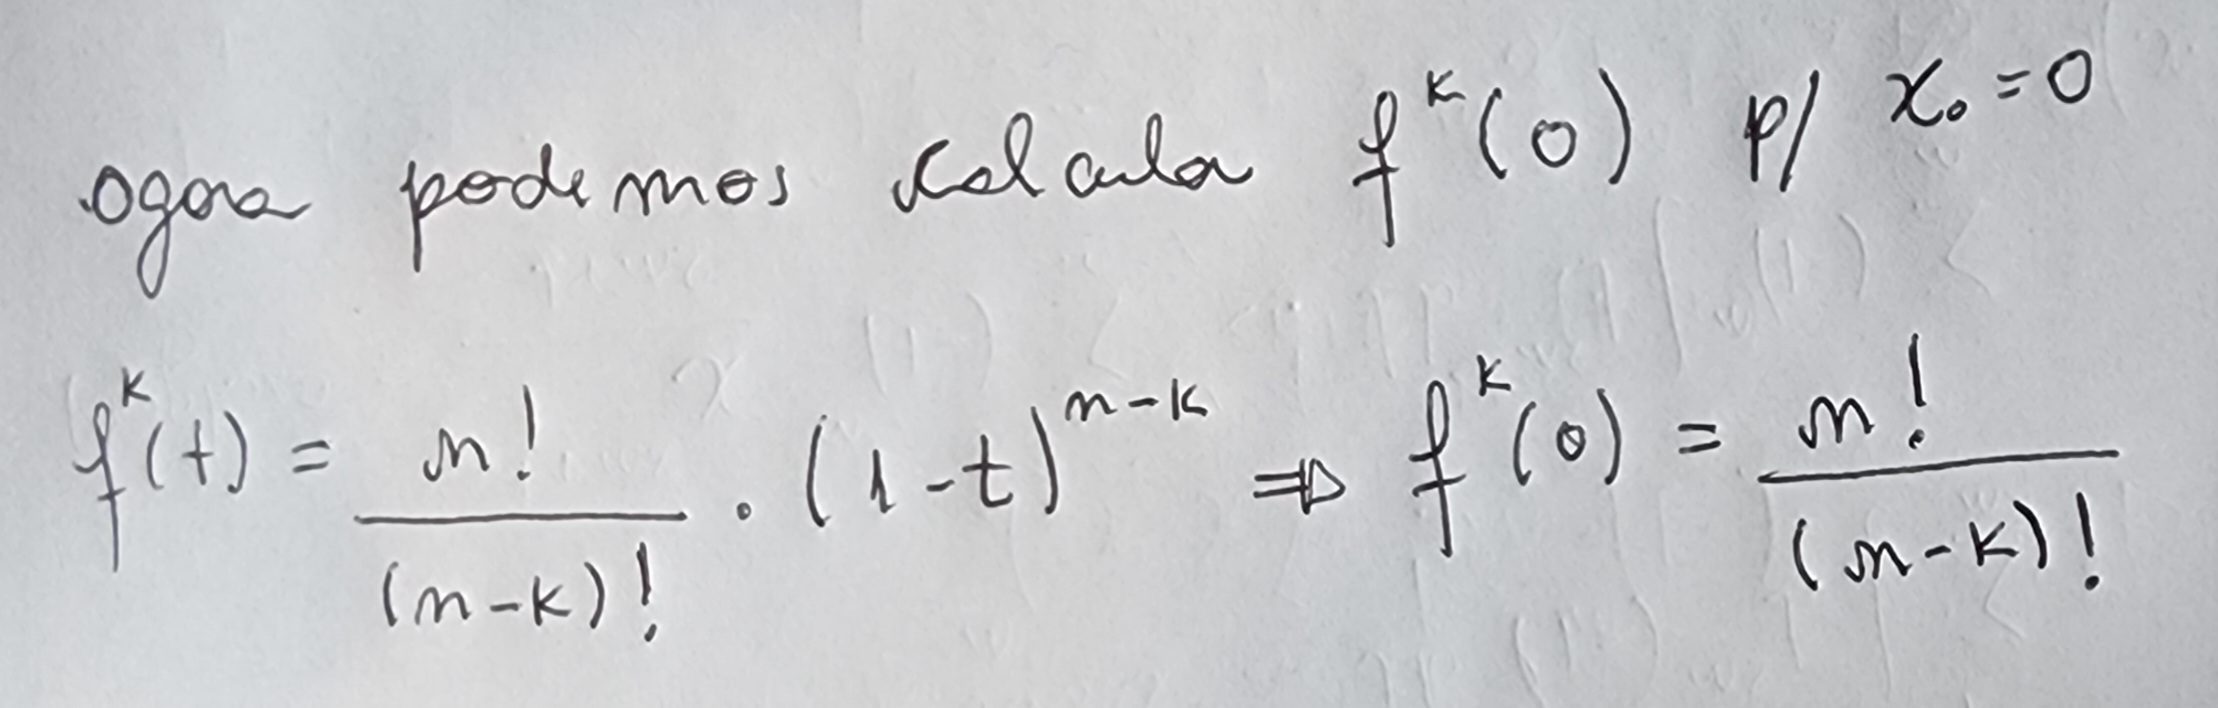 agora podemos calcular f^k(0) p/ x₀=0
f^k(t) = n!/(n-k)! · (1-t)^{n-k} ⇒ f^k(0) = n!/(n-k)!